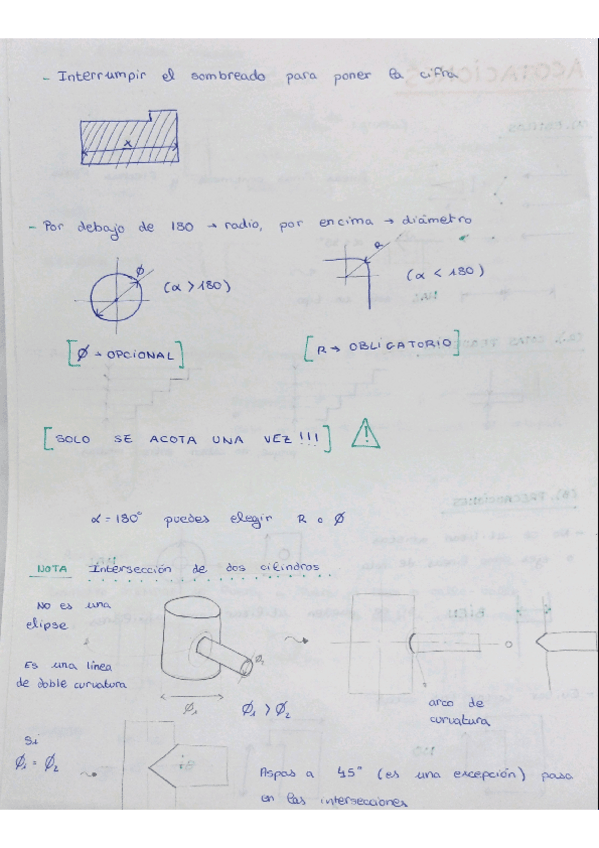 - Interrumpir el sombreado para poner la cifra
x
- Por debajo de 180 → radio, por encima → diámetro
Ø
(α > 180)
R
(α < 180)
[Ø → OPCIONAL]
[R → OBLIGATORIO]
[SOLO SE ACOTA UNA VEZ!!!]
α = 180° puedes elegir R o Ø
NOTA Intersección de dos cilindros
No es una
elipse
Es una línea
de doble curvatura
Ø₂
Ø₁
Ø₁ > Ø₂
o
arco de
curvatura
Si
Ø₁ = Ø₂
Aspas a 45° (es una excepción) pasa
en las intersecciones